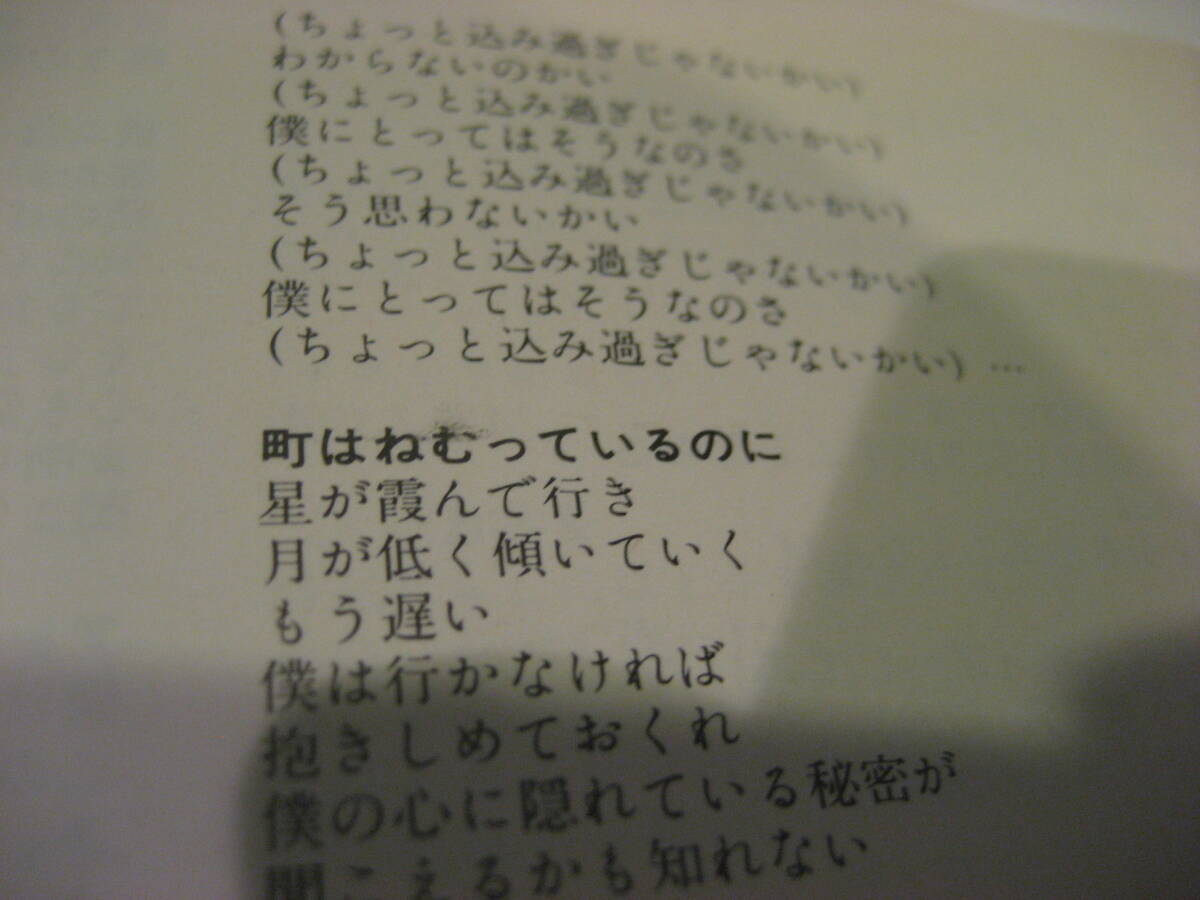 (ちょっと込み過ぎじゃないかい)
わからないのかい
(ちょっと込み過ぎじゃないかい)
僕にとってはそうなのさ
(ちょっと込み過ぎじゃないかい)
そう思わないかい
(ちょっと込み過ぎじゃないかい)
僕にとってはそうなのさ
(ちょっと込み過ぎじゃないかい) …
町はねむっているのに
星が霞んで行き
月が低く傾いていく
もう遅い
僕は行かなければ
抱きしめておくれ
僕の心に隠れている秘密が
聞こえるかも知れない